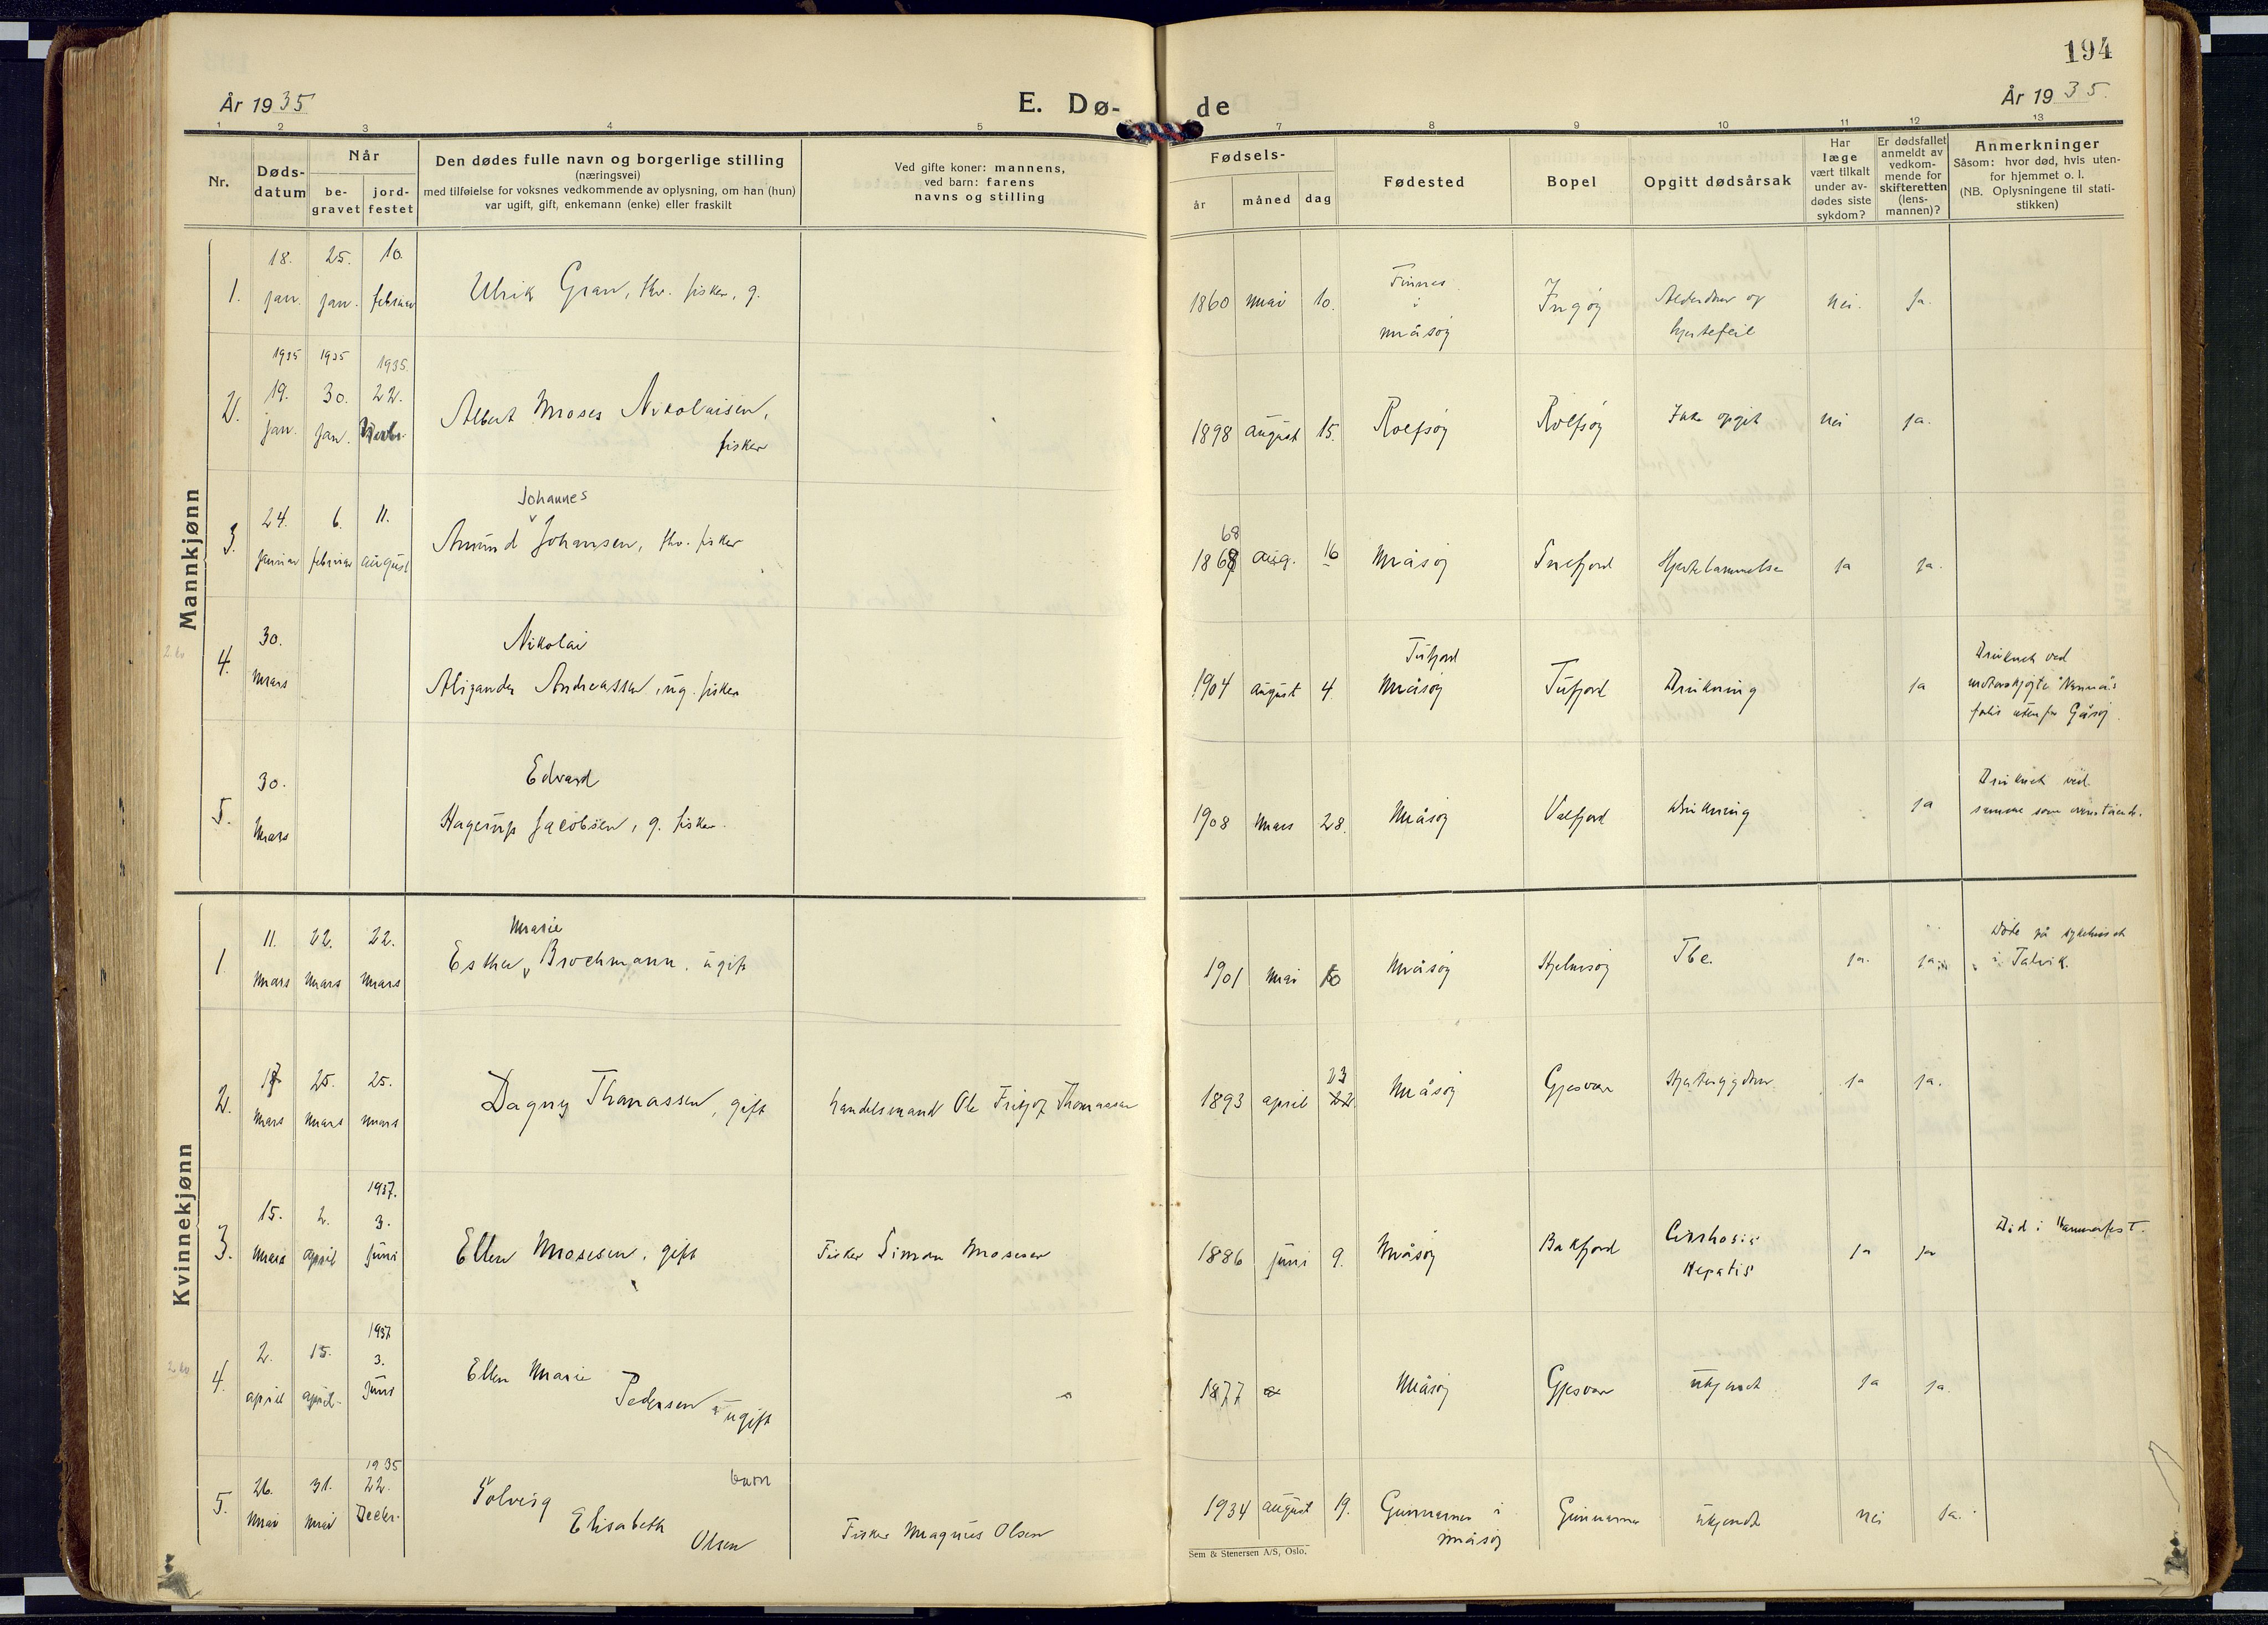 194
År 1935
E. Dø-
de
År 1935.
1 2 3 4 5 7 8 9 10 11 12 13
Nr.
Døds-
datum
Når
be-
gravet
jord-
festet
Den dødes fulle navn og borgerlige stilling
(næringsvei)
med tilføielse for voksnes vedkommende av oplysning, om han (hun)
var ugift, gift, enkemann (enke) eller fraskilt
Ved gifte koner: mannens,
ved barn: farens
navns og stilling
Fødsels-
år
måned
dag
Fødested
Bopel
Opgitt dødsårsak
Har
læge
vært tilkalt
under av-
dødes siste
sykdom?
Er dødsfallet
anmeldt av
vedkom-
mende for
skifteretten
(lens-
mannen)?
Anmerkninger
Såsom: hvor død, hvis uten-
for hjemmet o. l.
(NB. Oplysningene til stati-
stikken)
Mannkjønn
1. 18. jan. 1935 25. jan. 1935 10. februar 1935.
Ulrik Gran, fhv. fisker, g.
1860 mai 10. Finnes i Måsøy Ingøy Alderdom og hjertefeil nei. ja.
2. 19. jan. 30. jan. 22.
Albert Moses Nikolaisen,
fisker
1898 august 15. Rolfsøy Rolfsøy Ikke opgit nei ja.
3. 24. januar 6. februar 11. august
Johannes
Amund Johansen, fhv. fisker
68
186 aug. 16 Måsøy Snefjord Hjertelammelse ja ja.
4. 30. mars
Nikolai
Aligander Andreassen, ug. fisker
1904 august 4. Tufjord Måsøy Tufjord Drukning ja
Druknet ved
5. 30. mars
Edvard
Hagerup Jacobsen, g. fisker.
1908 mars 28. Måsøy Valfjord Drukning ja
Druknet ved
samme som ovenstående.
Kvinnekjønn
1 11. mars 22. mars 22. mars
Marie
Esther Brochmann, ugift
1901 mai 10 Måsøy Hjelmsøy Tbc. ja. ja.
Døde på sykehuset
i Talvik.
2. 17 mars 25. mars 25. mars
Dagny Thomassen, gift
handelsmand Ole Fritjof Thomassen
1893 april 23 22 Måsøy Gjesvær ja ja.
3. 15. mars 2. april 1937. 3. juni
Ellen Mosesen, gift
Fisker Simon Mosesen
1886 juni 9. Måsøy Bakfjord Cirrhosis Hepatis ja ja
Død i Hammerfest.
4. 2. april 15. april 1937 3. juni
Ellen Marie
Pedersen ugift
1877 Måsøy Gjesvær ukjendt ja ja.
5. 26. mai 31. mai 1935 22. Decbr.
Solveig
barn
Elisabeth
Olsen
Fisker Magnus Olsen
1934 august 19. Gunnarnes i Måsøy Gunnarnes ukjendt nei ja.
Sem & Stenersen A/S, Oslo.